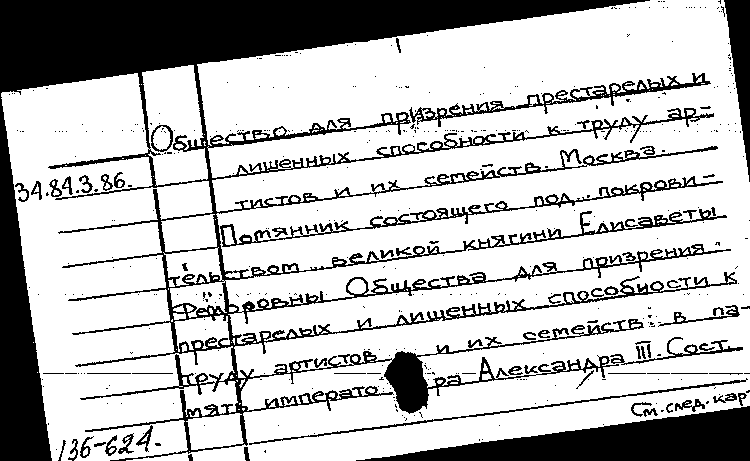 Общество для призрения престарелых и
лишенных способности к труду ар-
34.84.3.86.
тистов и их семейств. Москва.
Помянник состоящего под покрови-
тельством великой княгини Елисаветы
Федоровны Общества для призрения
престарелых и лишенных способности к
труду артистов и их семейств: в па-
мять императора Александра III. Сост.
См. след. кар
136-624.